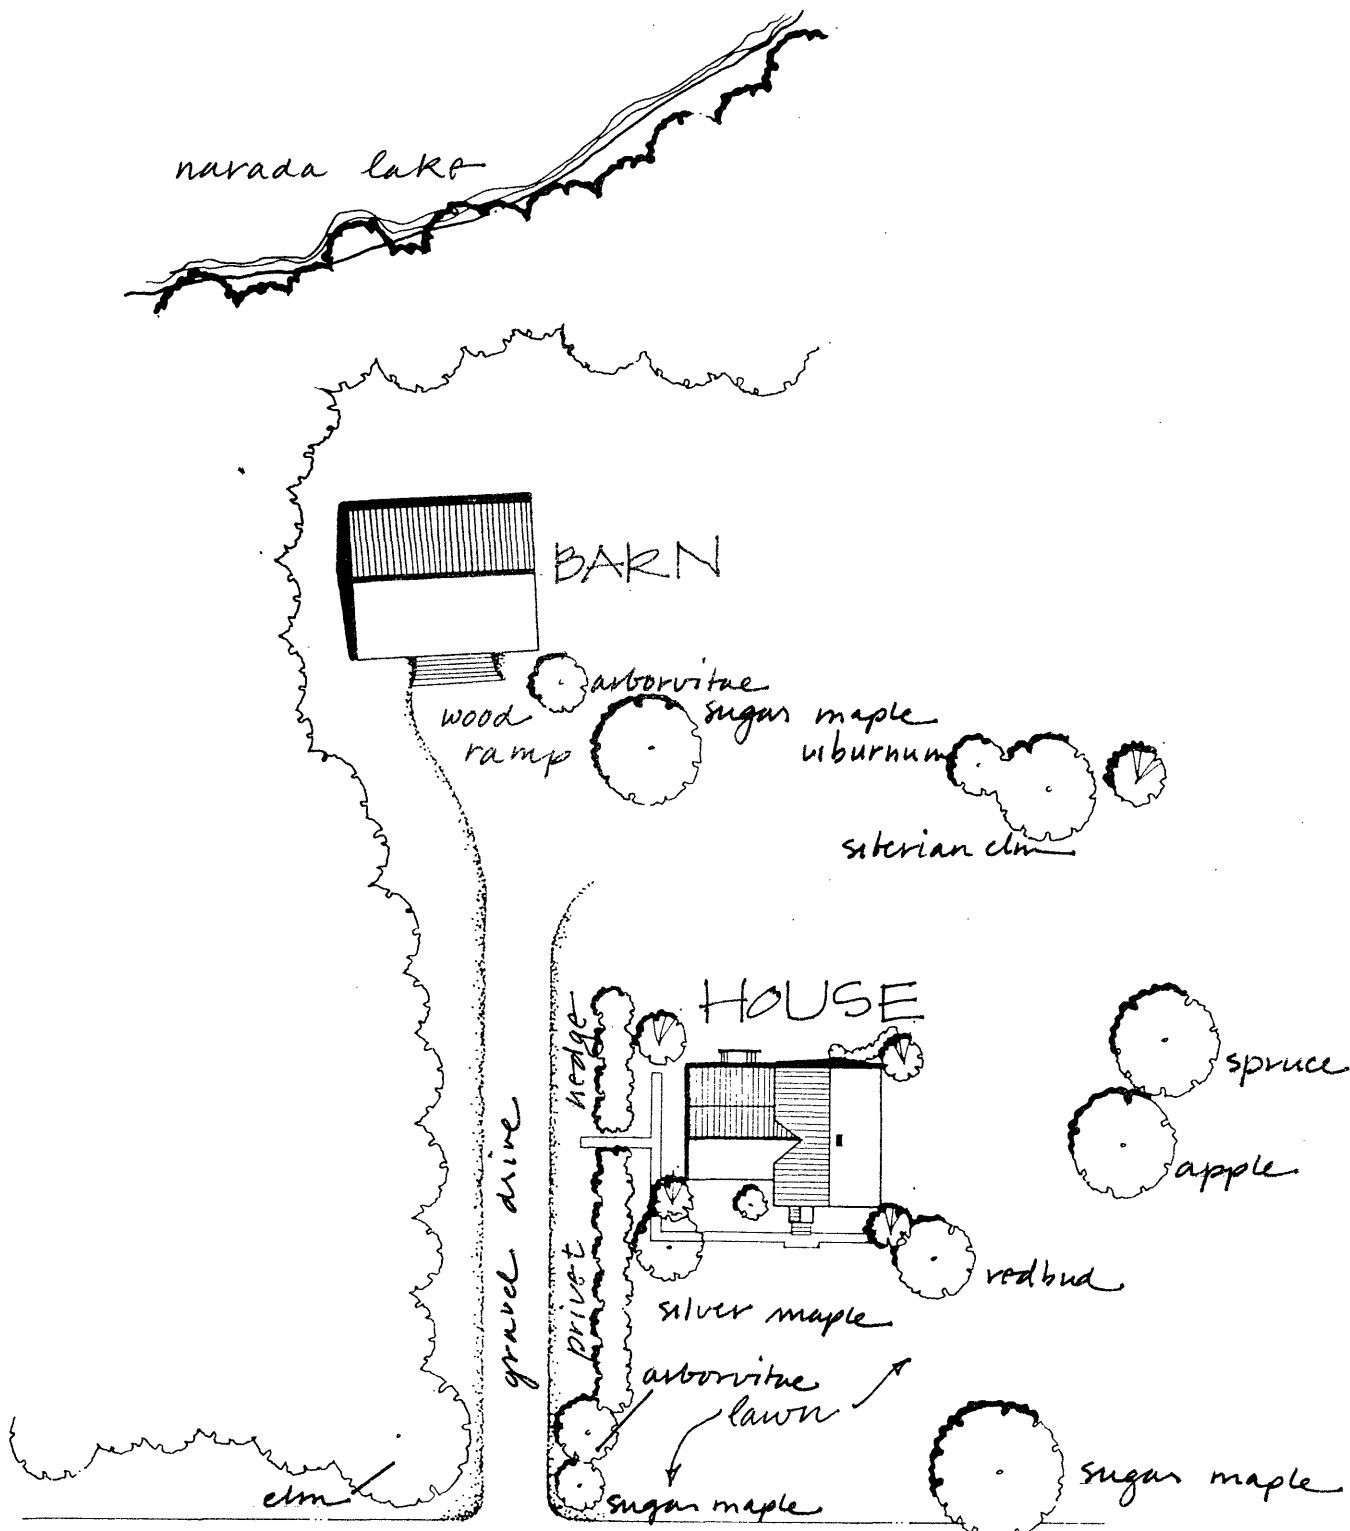 narada lake
BARN
arborvitae
wood
ramp
sugar maple
viburnum
siberian elm
HOUSE
hedge
privet
gravel drive
spruce
apple
redbud
silver maple
arborvitae
lawn
elm
sugar maple
sugar maple